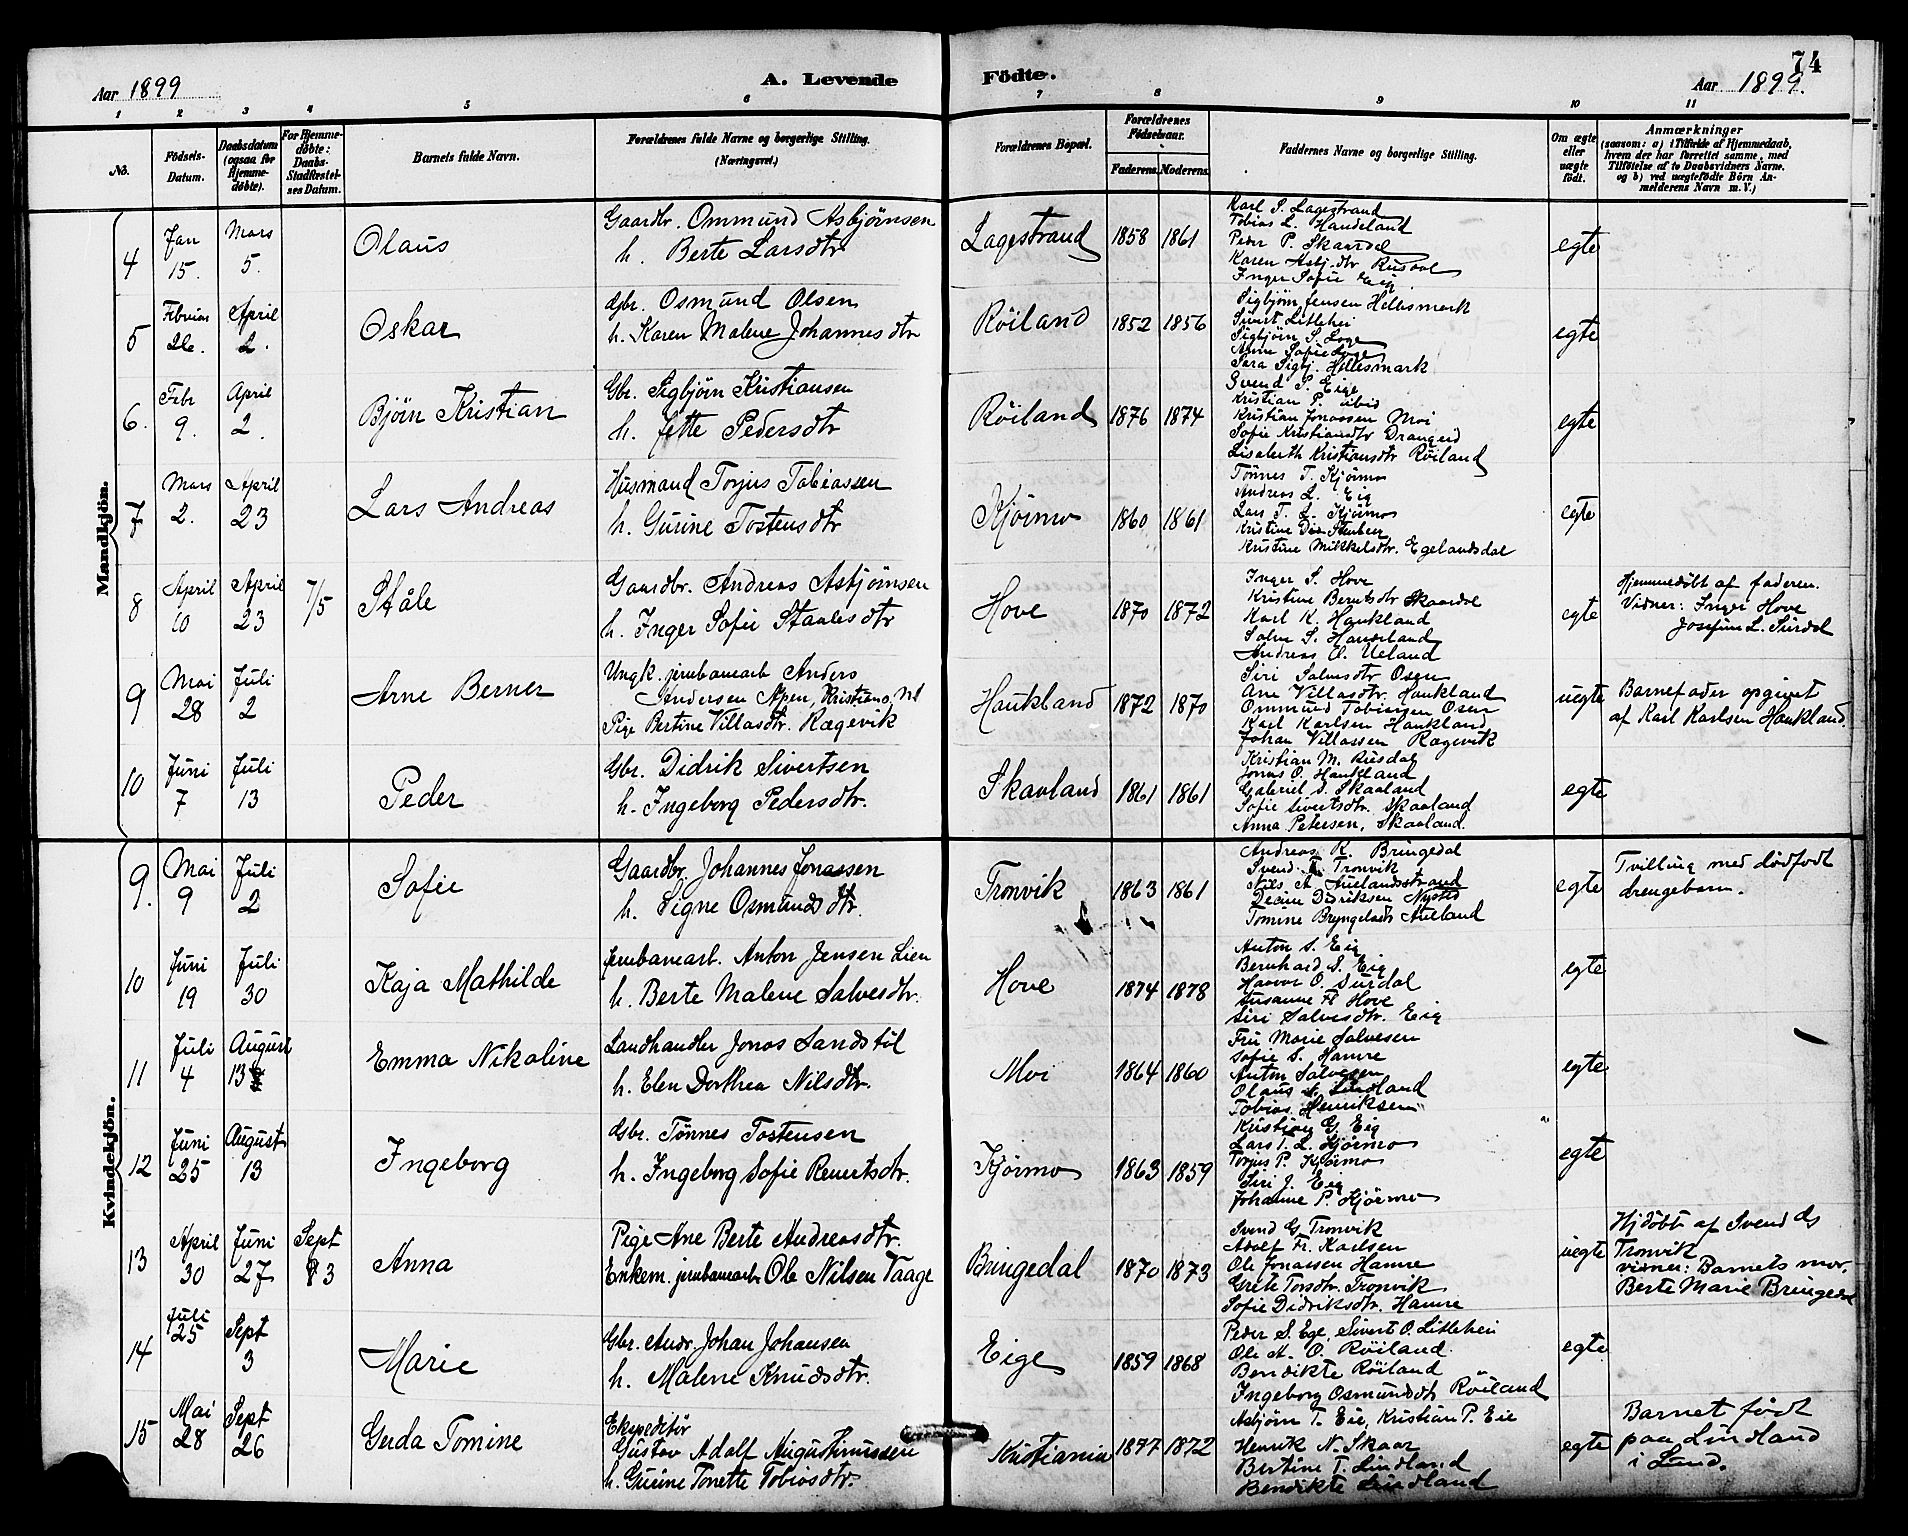 74
Aar 1899
A. Levende Födte.
Aar 1899.
1 2 3 4 5 6 7 8 9 10 11
No.
Födsels-
Datum.
Daabsdatum
(ogsaa for
Hjemme-
döbte).
For Hjemme-
döbte:
Daabs-
Stadfæstel-
ses Datum.
Barnets fulde Navn.
Forældrenes fulde Navne og borgerlige Stilling.
(Næringsvei.)
Forældrenes Bopæl.
Forældrenes
Födselsaar.
Faderens. Moderens.
Faddernes Navne og borgerlige Stilling.
Om ægte
eller
uægte
födt.
Anmærkninger
(saasom: a) i Tilfælde af Hjemmedaab,
hvem der har forrettet samme, med
Tilföielse af to Daabsvidners Navne.
og b) ved uægtefödte Börn An-
melderens Navn m. V.)
Mandkjön.
4
Jan
15.
Mars
5.
Olaus
Gaardbr. Ommund Asbjørnsen
h. Berte Larsdtr
Lagestrand
1858 1861
Karl S. Lagestrand
Tobias L. Handeland
Peder P. Skaardal
Karen Asbj.dtr Rusdal
Inger Sofie Eig
egte
5
Februar
26.
April
2.
Oskar
Gbr. Osmund Olsen
h. Karen Malene Johannesdtr
Røiland
1852 1856
Sigbjørn Jensen Hellesmark
Sivert Litlehei
Sigbjørn S. Loge
Anne Sofie Loge
Sara Sigbj. Hellesmark
egte
6.
Febr
9.
April
2.
Bjørn Kristian
Gbr. Sigbjørn Kristiansen
h. Jette Pedersdtr
Røiland
1876 1874
Svend S. Eige
Kristian P. ibid
Kristian Jonassen Moi
Sofie Kristiansdtr Drangeid
Lisabeth Kristiansdtr Røiland
egte
7
Mars
2.
April
23
Lars Andreas
Husmand Torjus Tobiassen
h. Gurine Tostensdtr
Kjørmo
1860 1861
Tønnes T. Kjørmo
Andreas L. Eig
Lars T. L. Kjørmo
Kristine Stenberg
Kristine Mikkelsdtr. Egelandsdal
egte
8
April
10
April
23
7/5
Ståle
Gaardbr. Andreas Asbjørnsen
h. Inger Sofie Staalesdtr
Hove
1870 1872
Inger S. Hove
Kristine Berntsdtr Skaardal
Karl K. Haukland
Salve S. Handeland
Andreas O. Ueland
egte
Hjemmedøbt af faderen.
Vidner: Inger Hove
Josefine L. Surdal
9
Mai
28
Juli
2
Arne Berner
Ungk. jernbanearb Anders
Andersen Apen, Kristians
Pige Bertine Villasdtr. Rægevik
Haukland
1872 1870
Siri Salvesdtr Osen
Ane Villasdtr. Haukland
Ommund Tobiasen Osen
Karl Karlsen Haukland
Johan Villassen Rægevik
uegte
Barnefader opgivet
af Karl Karlsen Haukland.
10
Juni
7
Juli
13
Peder
Gbr. Didrik Sivertsen
h. Ingeborg Pedersdtr.
Skaaland
1861 1861
Kristian M. Rusdal
Jonas O. Haukland
Gabriel S. Skaaland
Sofie Sivertsdtr. Skaaland
Anna Petersen, Skaaland.
egte
Kvindekjön.
9.
Mai
9
Juli
2
Sofie
Gaardbr. Johannes Jonassen
h. Signe Osmundsdtr.
Tronvik
1863 1861
Andreas R. Bringedal
Svend T. Tronvik
Nils A. Auelandsstrand
Didriksen Nysted
Tomine Bryngelsds Aueland
egte
Tvilling med dødfødt
drengebarn.
10
Juni
19
Juli
30
Kaja Mathilde
Jernbanearb. Anton Jensen Lien
h. Berte Malene Salvesdtr.
Hove
1874 1878
Anton S. Eig
Bernhard S. Eig
Haavor O. Surdal
Susanne Hove
Siri Salvesdtr. Eig
egte
11
Juli
4
August
13
Emma Nikoline
Landhandler Jonas Sandstöl
h. Elen Dorthea Nilsdtr.
Moi
1864 1860
Fru Marie Salvesen
Sofie S. Hamre
Anton Salvesen
Olaus Lindland
Tobias Henriksen
egte
12
Juni
25
August
13
Ingeborg
Gbr. Tönnes Tostensen
h. Ingeborg Sofie Reuertsdtr.
Kjørmo
1863 1859
Kristian G. Eig
Lars T. L. Kjørmo
Torjus P. Kjørmo
Siri J. Eig
Johanne P. Kjørmo
egte
13
April
30
Juni
27
Sept
3
Anna
Pige Ane Berte Andreasdtr.
Enkem. jernbanearb Ole Nilsen Vaage
Bringedal
1870 1873
Svend G. Tronvik
Adolf Fr. Karlsen
Ole Jonassen Hamre
Grete Torsdtr. Tronvik
Sofie Didriksdtr. Hamre
uegte
Hjdöbt af Svend Gs
Tronvik
vidner: Barnets mor,
Berte Marie Bringedal
14
Juli
25
Sept
3
Marie
Gbr. Andr. Johan Johansen
h. Malene Knudsdtr.
Eige
1859 1868
Peder S. Ege, Sivert O. Litlehei
Ole A. O. Røiland
Bendikte Røiland
Ingeborg Osmundsdtr Røiland
egte
15
Mai
28
Sept
26
Gerda Tomine
Ekspeditør
Gustav Adolf Augustinussen
h. Gurine Tonette Tobiasdtr.
Kristiania
1877 1872
Asbjørn T. Eie, Kristian P. Eie
Henrik N. Skaar
Bertine T. Lindland
Bendikte Lindland
egte
Barnet født
paa Lindland
i Lund.